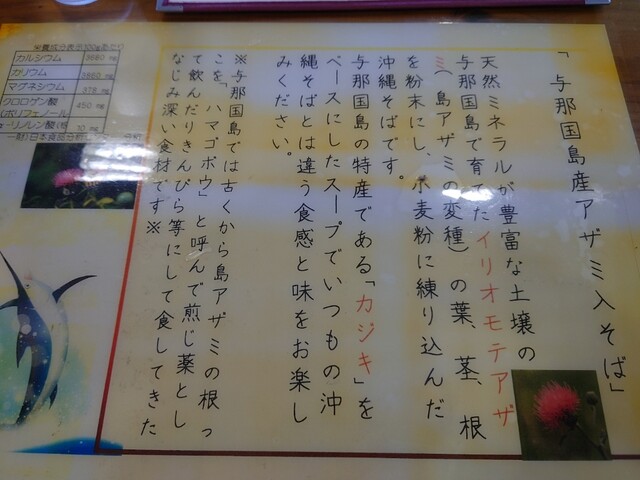 「与那国島産アザミ入そば」
天然ミネラルが豊富な土壌の
与那国島で育てたイリオモテアザ
ミ(島アザミの変種)の葉、茎、根
を粉末にし、小麦粉に練り込んだ
沖縄そばです。
与那国島の特産である「カジキ」を
ベースにしたスープでいつもの沖
縄そばとは違う食感と味をお楽し
みください。
※与那国島では古くから島アザミの根っ
こを「ハマゴボウ」と呼んで煎じ薬とし
て飲んだりきんぴら等にして食してきた
なじみ深い食材です※
栄養成分表示100g当たり
カルシウム 3660 mg
カリウム 3860 mg
マグネシウム 378 mg
クロロゲン酸 450 mg
(ポリフェノール
α-リノレン酸 10 mg